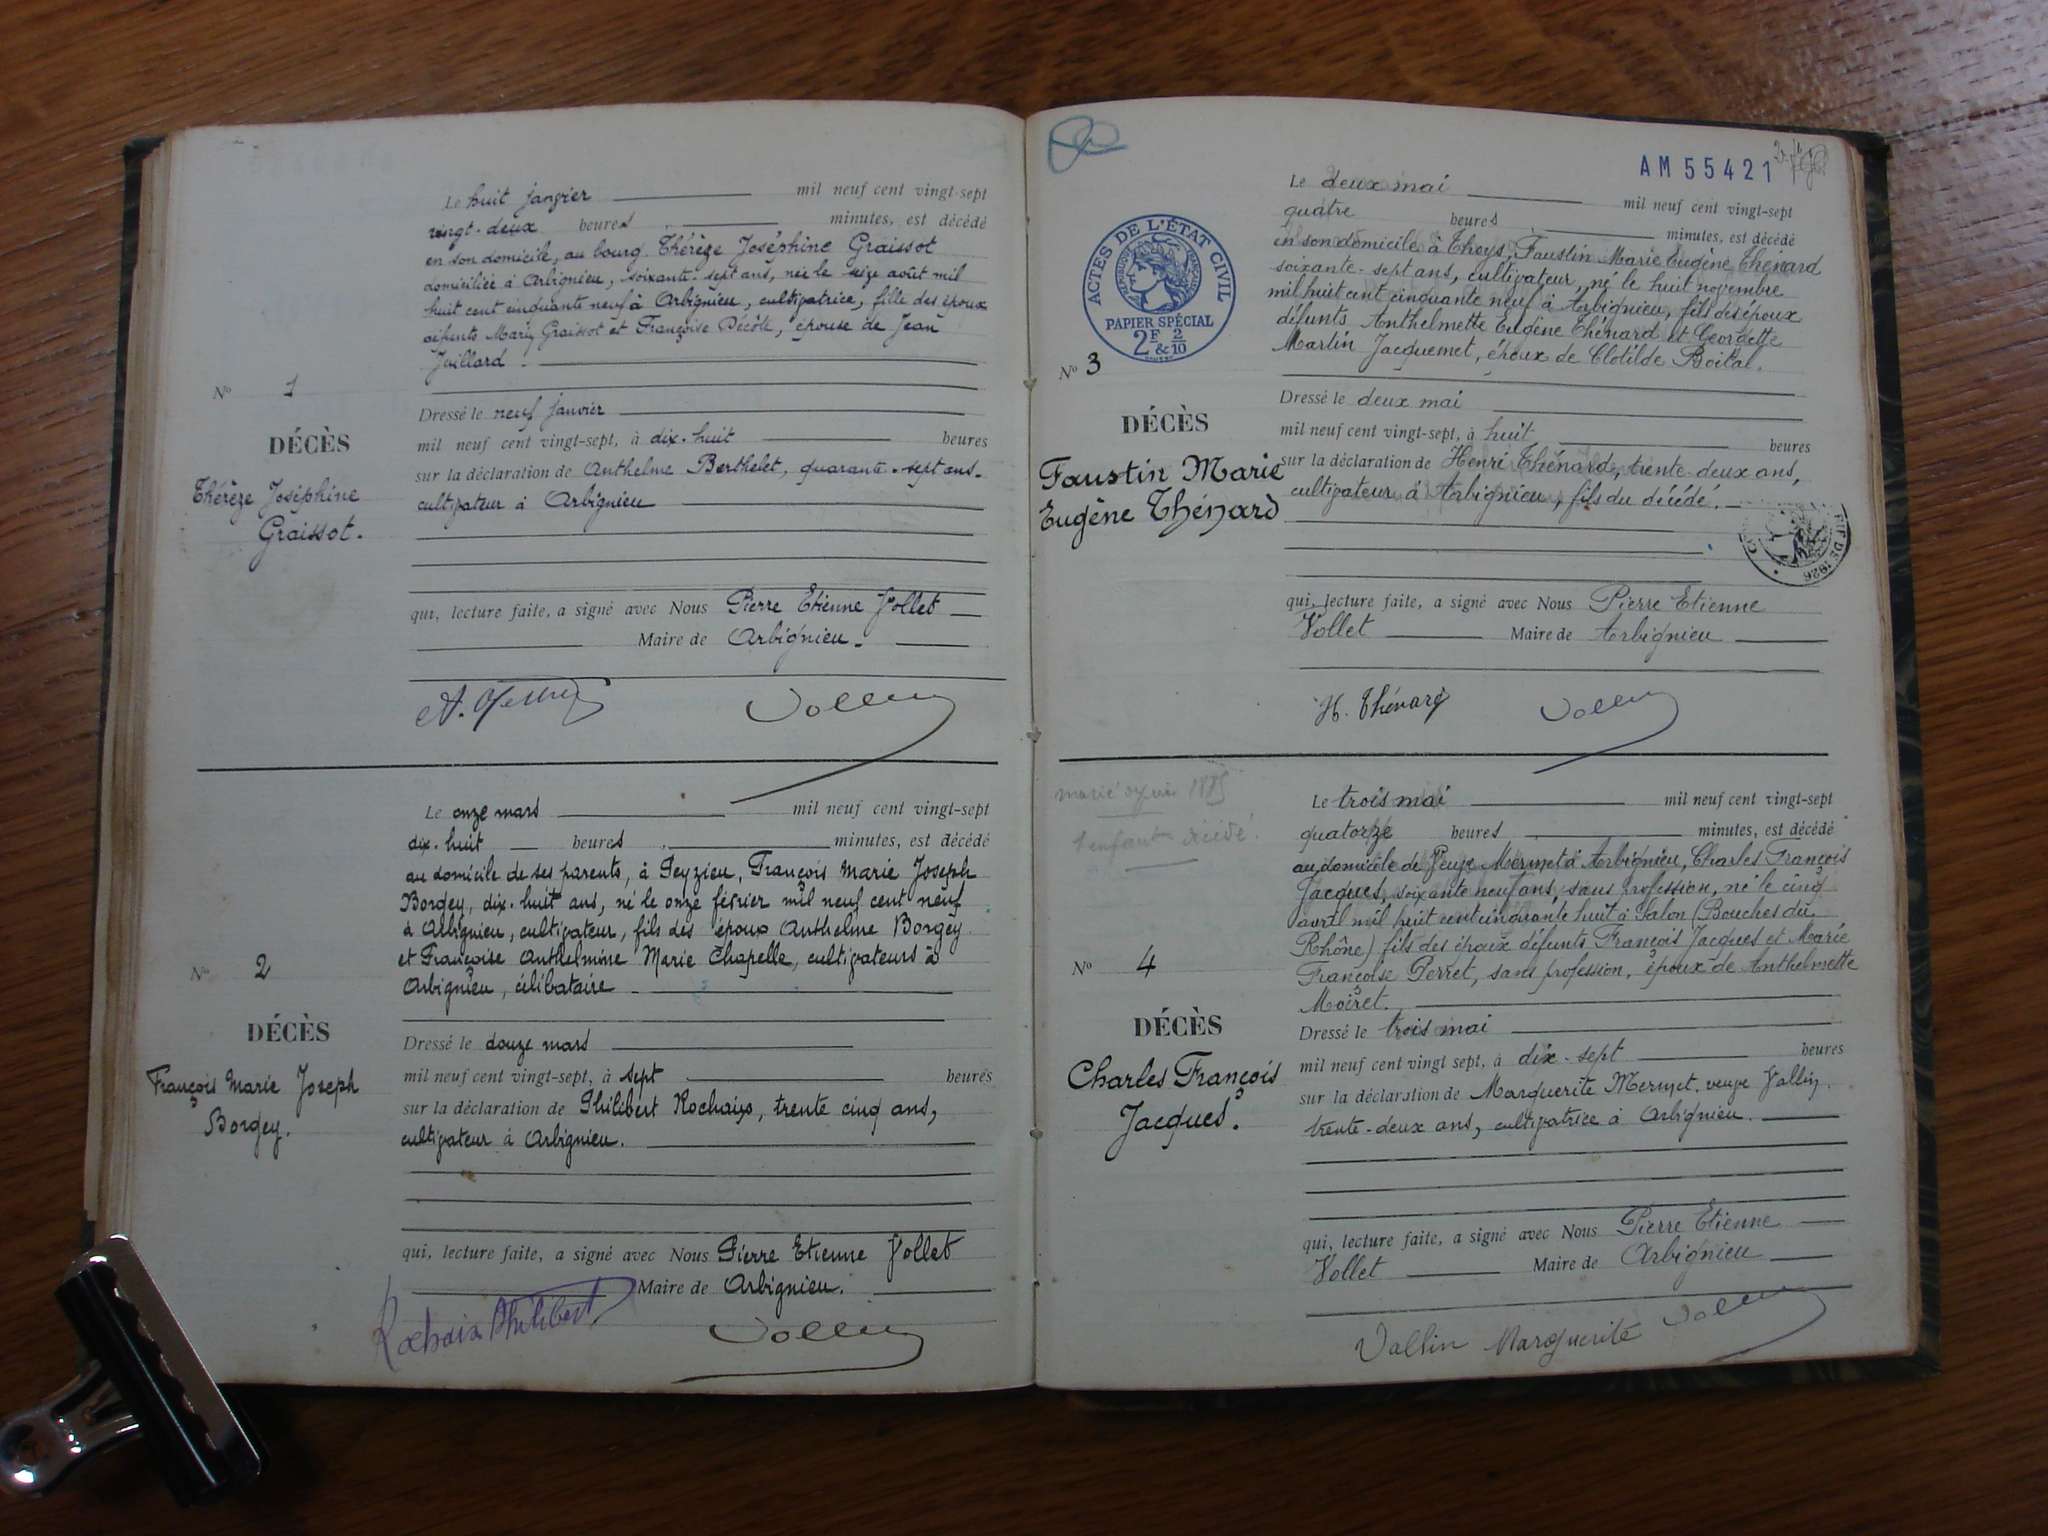 Le huit janvier mil neuf cent vingt-sept
vingt-deux heures minutes, est décédé
en son domicile, au bourg Thérèze Joséphine Graissot
domiciliée à Arbignieu, soixante-sept ans, née le seize août mil
huit cent cinquante neuf à Arbignieu, cultivatrice, fille des époux
défunts Marin Graissot et Françoise Décôte, épouse de Jean
Juillard.
N° 1
DÉCÈS
Thérèze Joséphine
Graissot.
Dressé le neuf janvier
mil neuf cent vingt-sept, à dix-huit heures
sur la déclaration de Anthelme Berthelet, quarante-sept ans
cultivateur à Arbignieu
qui, lecture faite, a signé avec Nous Pierre Etienne Vollet
Maire de Arbignieu.
Vollet
Le onze mars mil neuf cent vingt-sept
dix-huit heures minutes, est décédé
au domicile de ses parents, à Peyzieu, François Marie Joseph
Borgey, dix-huit ans, né le onze février mil neuf cent neuf
à Arbignieu, cultivateur, fils des époux Anthelme Borgey
et Françoise Anthelmine Marie Chapelle, cultivateurs à
Arbignieu, célibataire
N° 2
DÉCÈS
François Marie Joseph
Borgey.
Dressé le douze mars
mil neuf cent vingt-sept, à sept heures
sur la déclaration de Philibert Rochaix, trente cinq ans,
cultivateur à Arbignieu.
qui, lecture faite, a signé avec Nous Pierre Etienne Vollet
Maire de Arbignieu.
Rochaix Philibert
Vollet
AM 55421
ACTES DE L'ÉTAT CIVIL
RÉPUBLIQUE FRANÇAISE
PAPIER SPÉCIAL
2F & 2/10
Le deux mai mil neuf cent vingt-sept
quatre heures minutes, est décédé
en son domicile à Thoys, Faustin Marie Eugène Thénard
soixante-sept ans, cultivateur, né le huit novembre
mil huit cent cinquante neuf à Arbignieu, fils des époux
défunts Anthelmette Eugène Thénard et Georgette
Martin Jacquemet, époux de Clotilde Boilal.
N° 3
DÉCÈS
Faustin Marie
Eugène Thénard
Dressé le deux mai
mil neuf cent vingt-sept, à huit heures
sur la déclaration de Henri Thénard, trente-deux ans,
cultivateur à Arbignieu, fils du décédé.
DE 1926
qui, lecture faite, a signé avec Nous Pierre Etienne
Vollet Maire de Arbignieu
H. Thénard Vollet
marié 1875
1 enfant décédé.
Le trois mai mil neuf cent vingt-sept
quatorze heures minutes, est décédé
au domicile de Veuve Mermet à Arbignieu, Charles François
Jacques, soixante neuf ans, sans profession, né le cinq
avril mil huit cent cinquante huit à Salon (Bouches du
Rhône) fils des époux défunts François Jacques et Marie
Françoise Perret, sans profession, époux de Anthelmette
Moiret.
N° 4
DÉCÈS
Charles François
Jacques.
Dressé le trois mai
mil neuf cent vingt sept, à dix-sept heures
sur la déclaration de Marguerite Mermet veuve Vallin
trente-deux ans, cultivatrice à Arbignieu.
qui, lecture faite, a signé avec Nous Pierre Etienne
Vollet Maire de Arbignieu
Vallin Marguerite Vollet